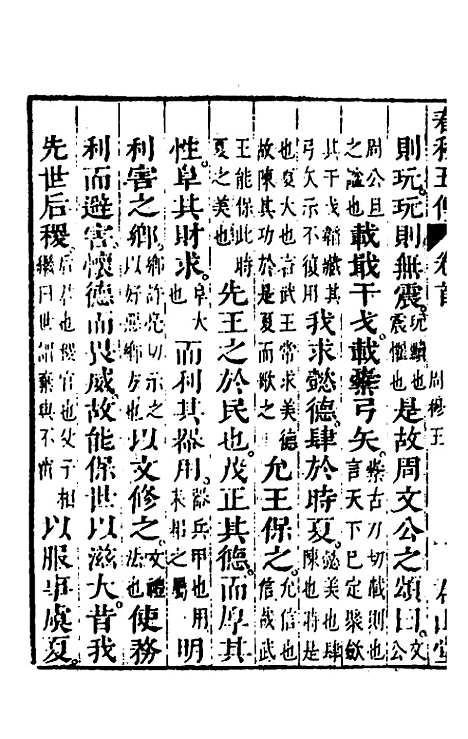 春秋五傳 卷首 周穆王 一
則玩。玩則無震。玩黷也震懼也是故周文公之頌曰。文公
周公旦之謚也載戢干戈。載櫜弓矢。櫜古刀切載則也言天下已定聚歛
其干戈韜藏其弓矢示不復用我求懿德。肆於時夏。懿美也肆陳也時是
也夏大也言武王常求美德故陳其功於是夏而歌之允王保之。允信也信哉武
王能保此時夏之美也先王之於民也。茂正其德。而厚其
性。阜其財求。阜大也而利其器用。器兵甲也用耒耜之屬明
利害之鄉。鄉許亮切示之以好惡鄉方也以文修之。文禮法也使務
利而避害。懷德而畏威。故能保世以滋大。昔我
先世后稷。后君也稷官也父子相繼曰世謂棄與不窋以服事虞夏。